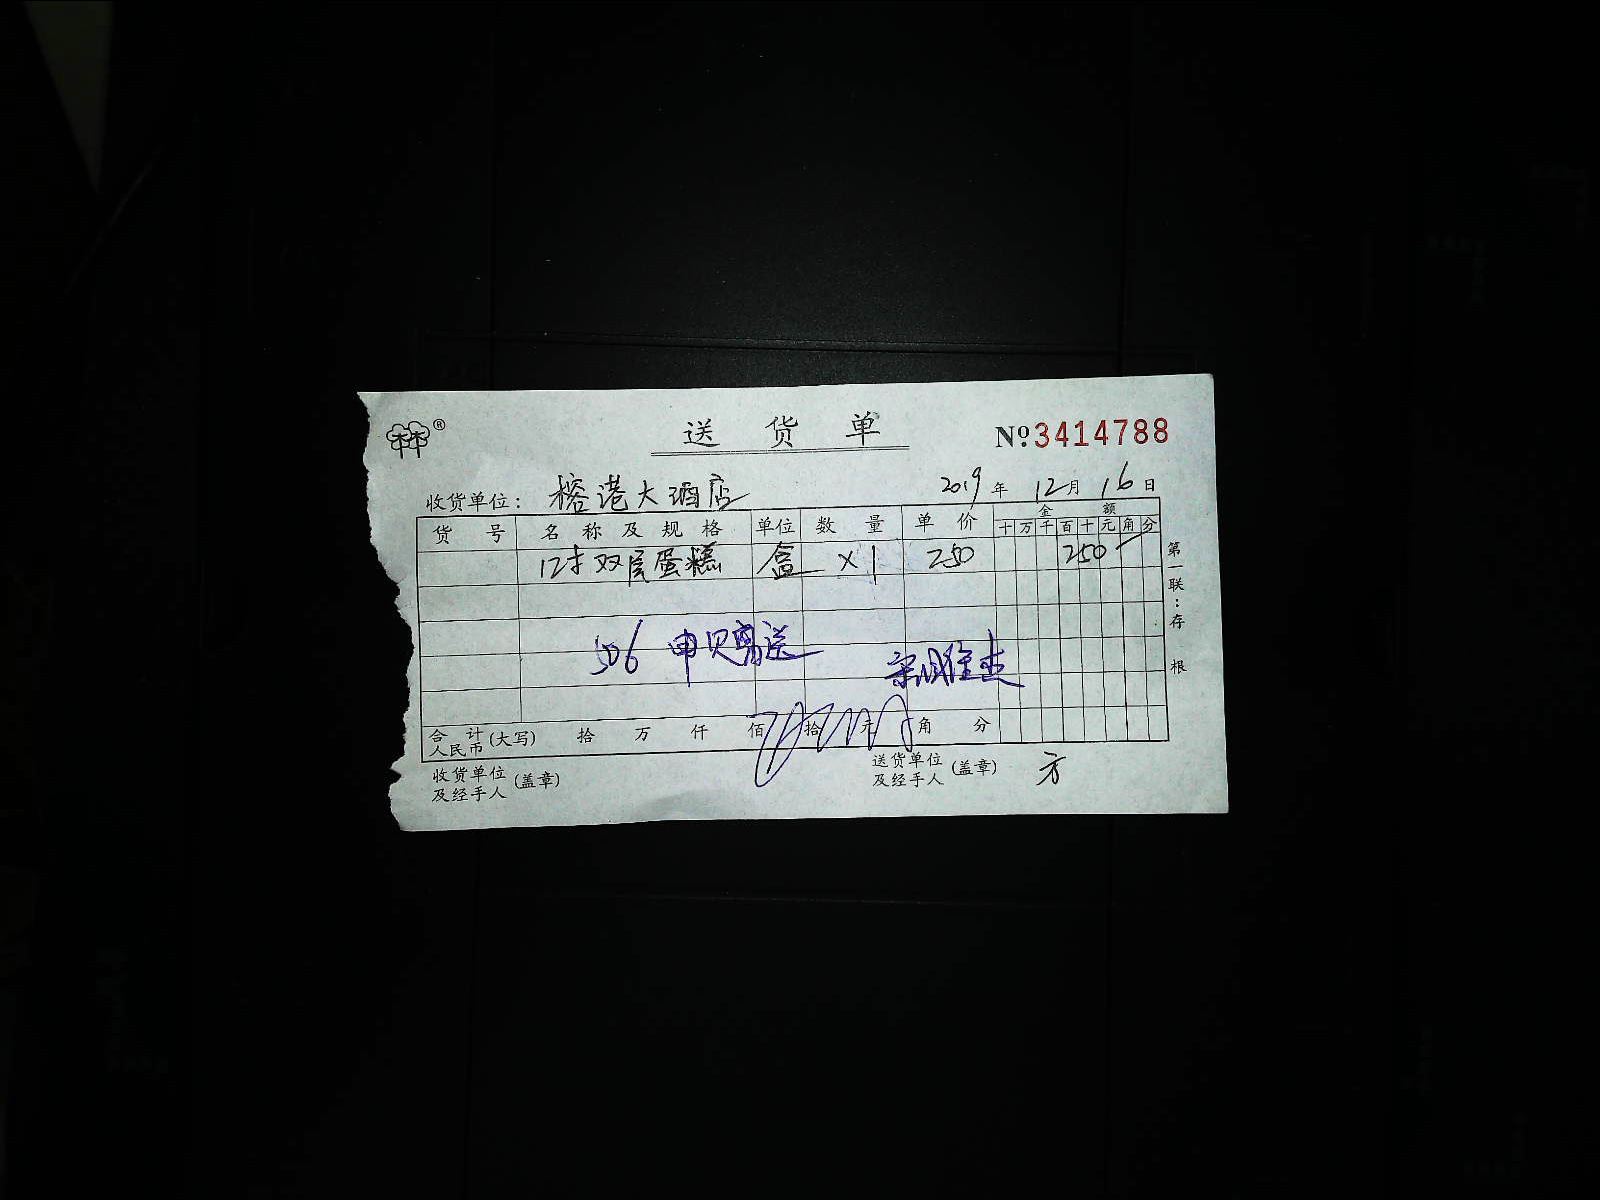 林 ®
送 货 单
№ 3414788
收货单位： 榕港大酒店 2019 年 12 月 16 日
货 号 名 称 及 规 格 单位 数 量 单 价 金 额
十 万 千 百 十 元 角 分
12寸双层蛋糕 盒 x1 250 250
506 申贝 送
合 计 人民币 (大写) 拾 万 仟 佰 拾 元 角 分
收货单位 及经手人 (盖章) 送货单位 及经手人 (盖章) 方
第一联：存 根